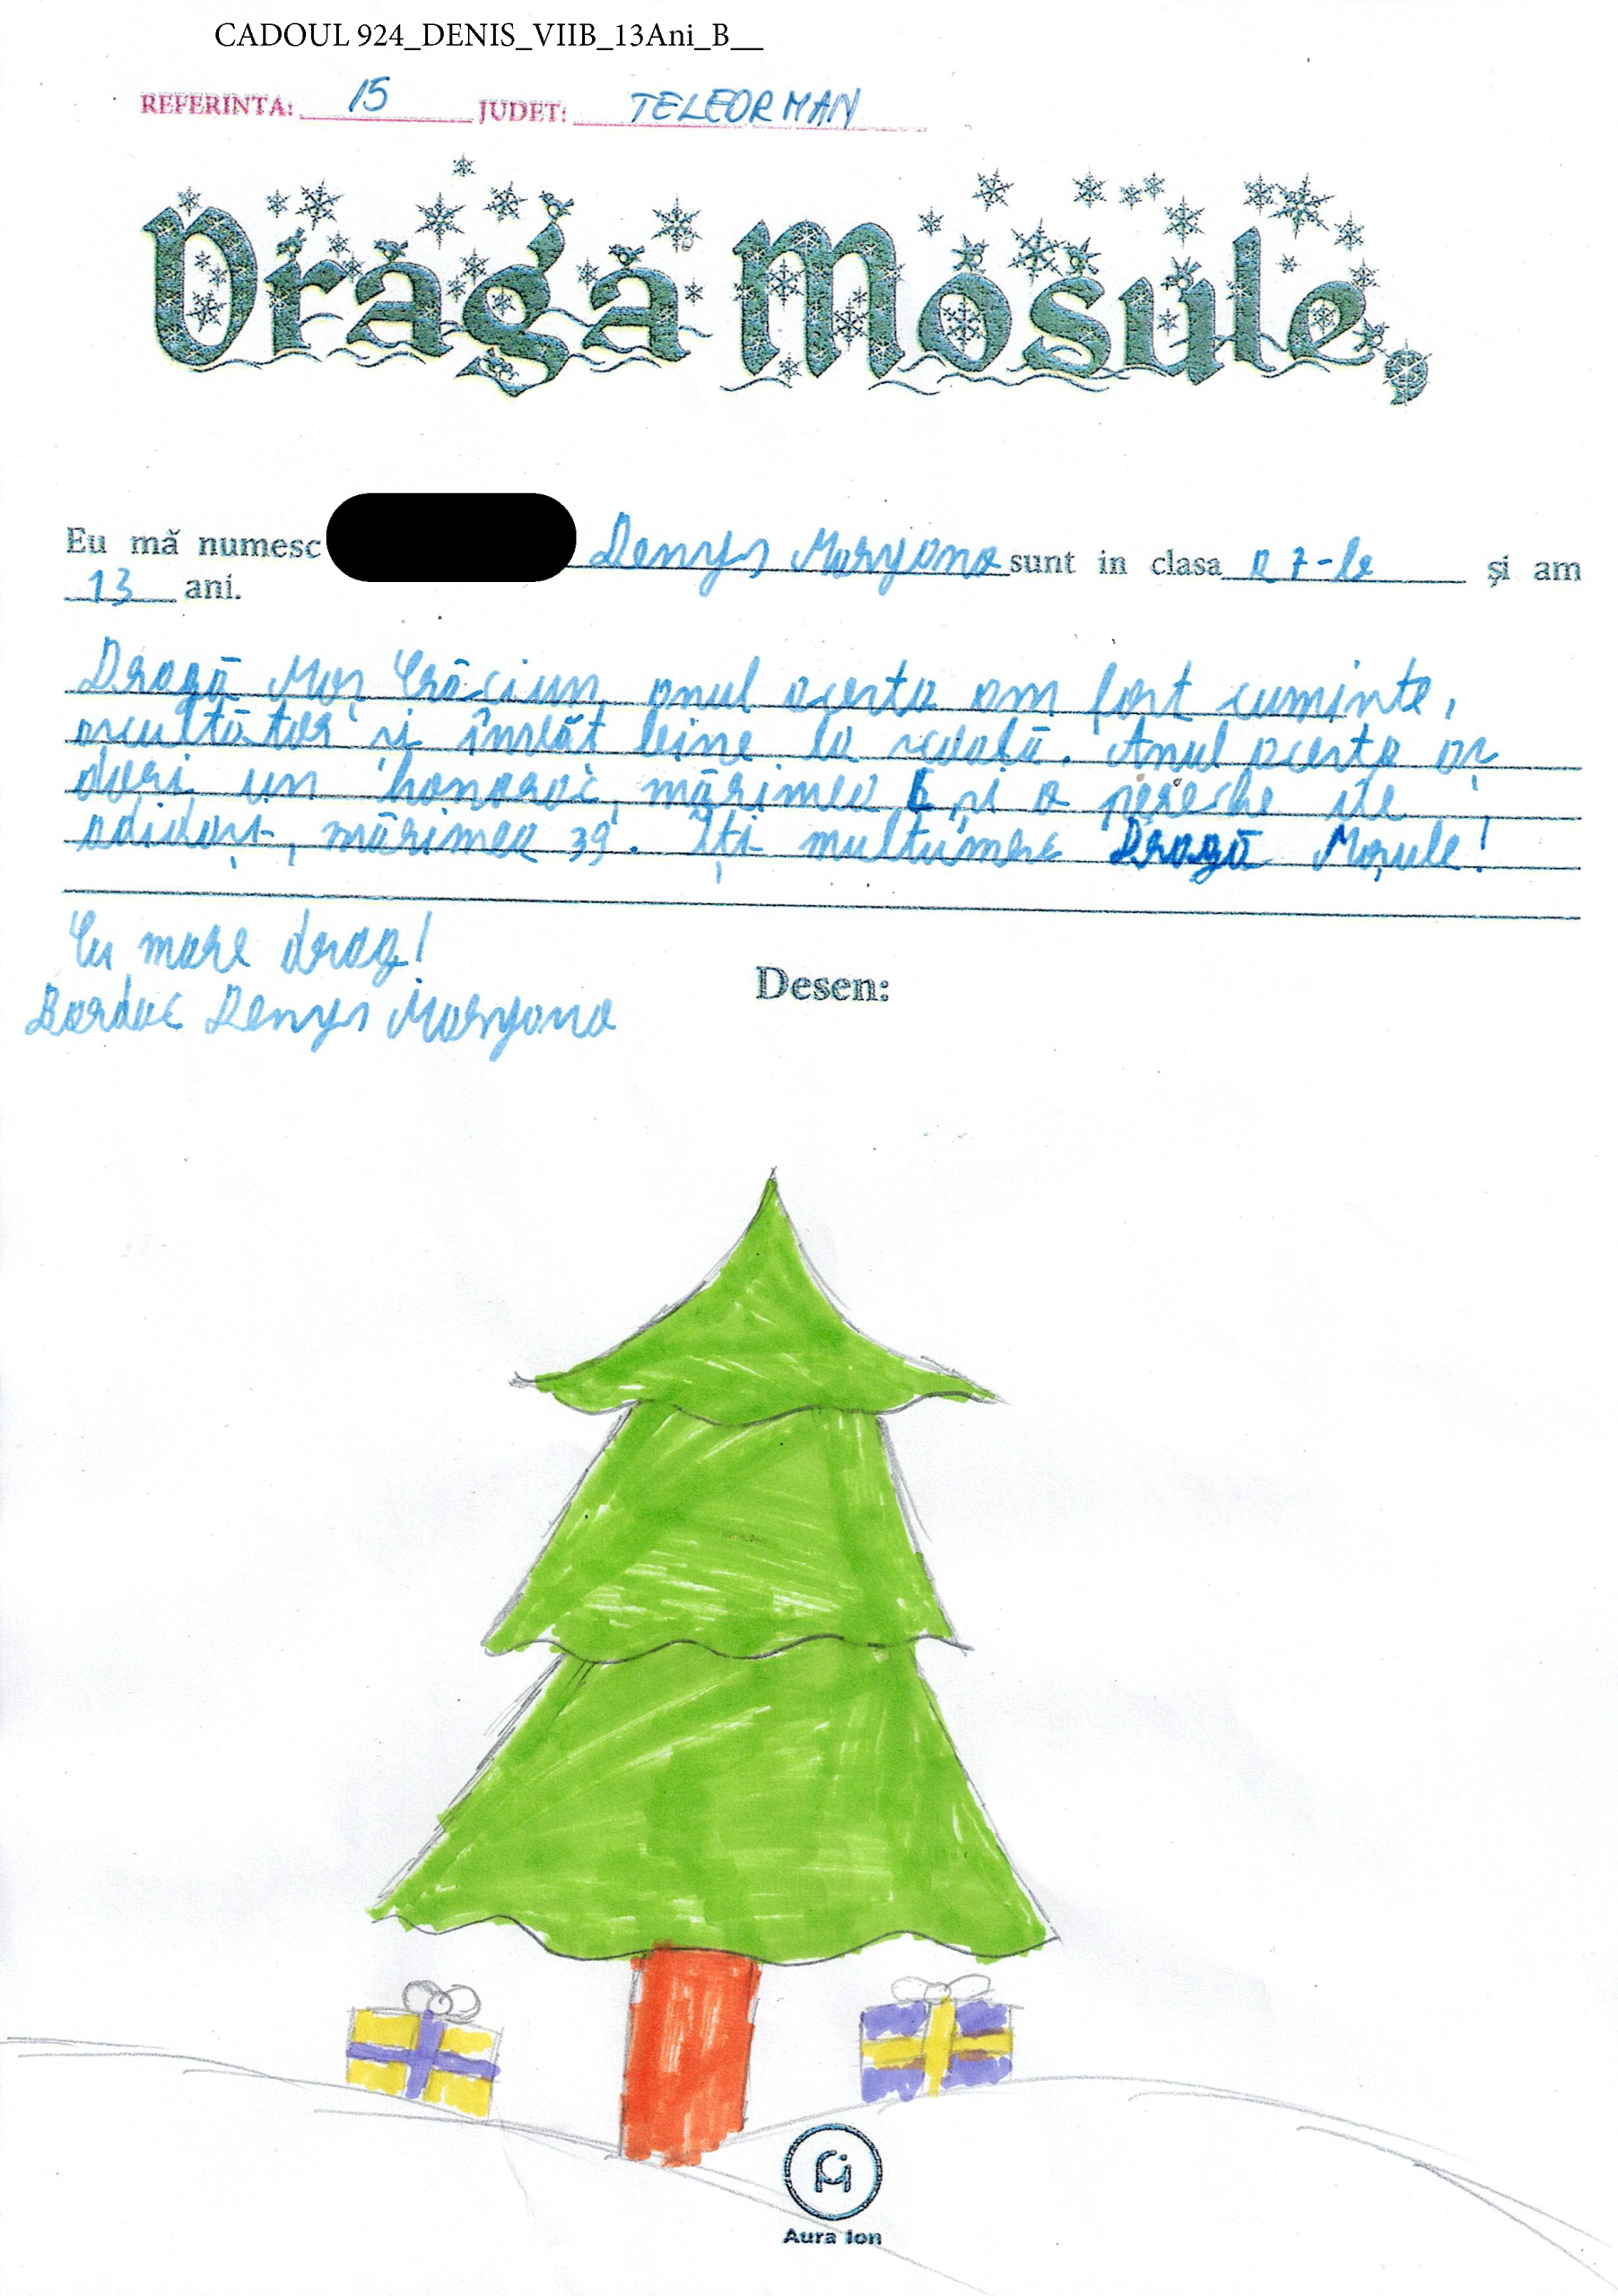 CADOUL 924_DENIS_VIIB_13Ani_B__
REFERINTA: 15 JUDET: TELEORMAN
Draga Mosule,
Eu mă numesc Denys Maryano sunt in clasa a 7-la și am
13 ani.
Dragă Moș Crăciun, anul acesta am fost cuminte,
ascultător și învăț bine la școală. Anul acesta aș
dori un hanorac, mărimea și o pereche de
adidași, mărimea 39. Îți mulțumesc Dragă Moșule!
Cu mare drag!
Denys Maryano
Desen:
Aura Ion